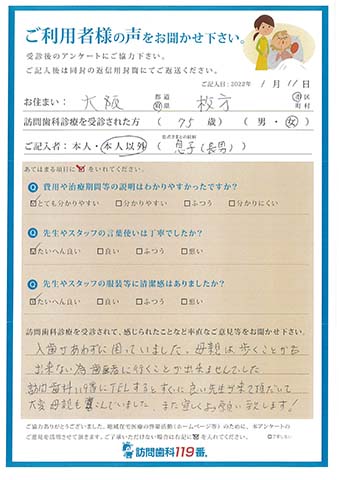 ご利用者様の声をお聞かせ下さい。
受診後のアンケートにご協力下さい。
ご記入後は同封の返信用封筒にてご返送ください。
ご記入日：2022年 1月 11日
お住まい： 大阪 都道府県 枚方 市区町村
訪問歯科診療を受診された方 （ 75 歳） （ 男 ・ 女 ）
患者さまとの続柄
ご記入者：本人・本人以外 （ 息子（長男） ）
あてはまる項目に☑をいれてください。
Q 費用や治療期間等の説明はわかりやすかったですか？
☑とても分かりやすい □分かりやすい □ふつう □分かりにくい
Q 先生やスタッフの言葉使いは丁寧でしたか？
☑たいへん良い □良い □ふつう □悪い
Q 先生やスタッフの服装等に清潔感はありましたか？
☑たいへん良い □良い □ふつう □悪い
訪問歯科診療を受診されて、感じられたことなど率直なご意見等をお聞かせ下さい。
入歯があわずに困っていました。母親は歩くことがお
出来ない為歯医者に行くことが出来ませんでした
訪問歯科119番にTELするとすぐに良い先生が来て頂だいて
大変母親も喜こんでいました。また宜しくお願い致します！
ご協力ありがとうございました。地域在宅医療の啓発活動（ホームページ等）のために、本アンケートの
ご意見を活用させて頂きます。ご了承いただけない場合は右記に☑を入れてください。
訪問歯科119番。